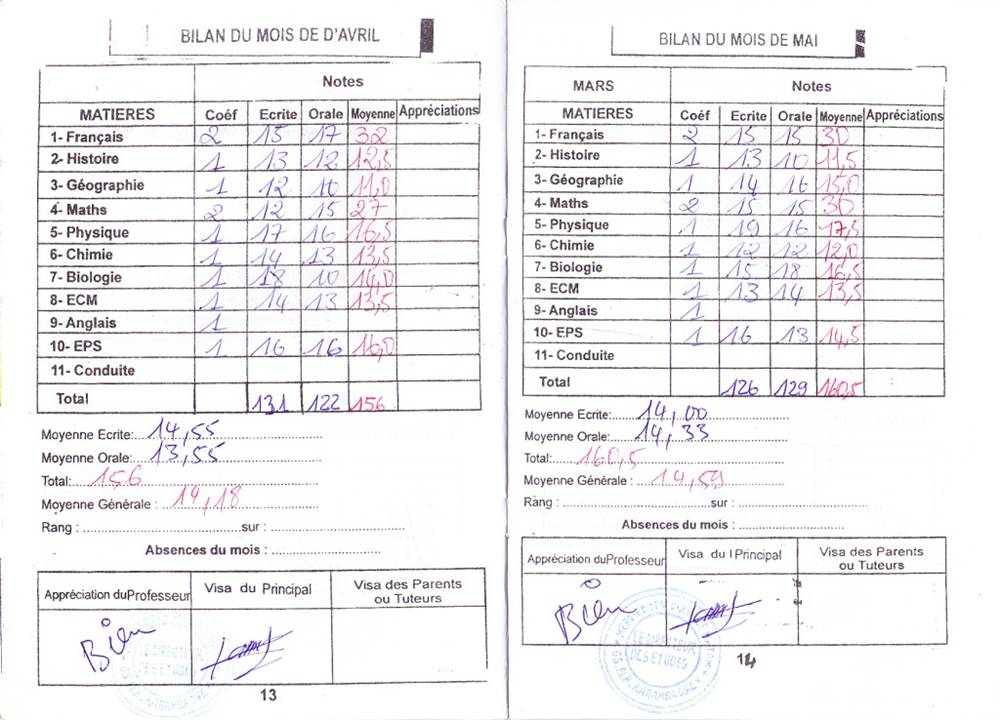 BILAN DU MOIS DE D'AVRIL
Notes
MATIERES Coéf Ecrite Orale Moyenne Appréciations
1- Français 2 15 17 32
2- Histoire 1 13 12 12,5
3- Géographie 1 12 10 11,0
4- Maths 2 12 15 27
5- Physique 1 17 16 16,5
6- Chimie 1 14 13 13,5
7- Biologie 1 18 10 14,0
8- ECM 1 14 13 13,5
9- Anglais 1
10- EPS 1 16 16 16,0
11- Conduite
Total 131 122 156
Moyenne Ecrite: 14,55
Moyenne Orale: 13,55
Total: 156
Moyenne Générale : 14,18
Rang : sur :
Absences du mois :
Appréciation du Professeur Visa du Principal Visa des Parents
ou Tuteurs
Bien
LE DIRECTEUR
DES ETUDES
13
BILAN DU MOIS DE MAI
MARS Notes
MATIERES Coéf Ecrite Orale Moyenne Appréciations
1- Français 2 15 15 30
2- Histoire 1 13 10 11,5
3- Géographie 1 14 16 15,0
4- Maths 2 15 15 30
5- Physique 1 19 16 17,5
6- Chimie 1 12 12 12,0
7- Biologie 1 15 18 16,5
8- ECM 1 13 14 13,5
9- Anglais 1
10- EPS 1 16 13 14,5
11- Conduite
Total 126 129 160,5
Moyenne Ecrite: 14,00
Moyenne Orale: 14,33
Total: 160,5
Moyenne Générale : 14,59
Rang : sur :
Absences du mois :
Appréciation du Professeur Visa du Principal Visa des Parents
ou Tuteurs
Bien
LE DIRECTEUR
DES ETUDES
14